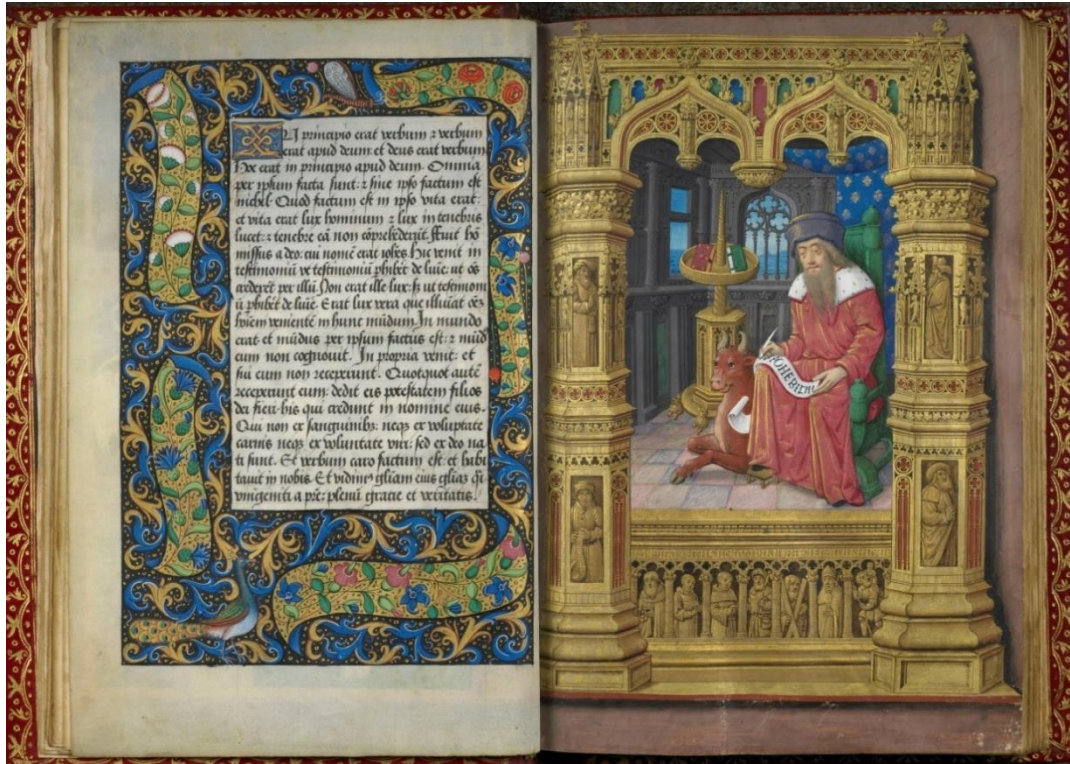 IN principio erat verbum ⁊ verbum
erat apud deum: et deus erat verbum
Hoc erat in principio apud deum. Omnia
per ipsum facta sunt: ⁊ sine ipso factum est
nichil. Quod factum est in ipso vita erat:
et vita erat lux hominum ⁊ lux in tenebris
lucet: ⁊ tenebre eā non cōprehēderūt. Fuit hō
missus a deo: cui nomē erat iohēs. Hic venit in
testimoniū vt testimoniū phibēt de luīe: ut oēs
crederēt per illū. Non erat ille lux: sꝫ ut testimoni
ū phibēt de luīe. Erat lux vera que illuīat oēꝫ
hoīem venientē in hunc mūdum. In mundo
erat et mūdus per ipsum factus est: ⁊ mūd
eum non cognouit. In propria venit: et
sui eum non receperunt. Quotquot autē
receperunt eum: dedit eis potestatem filios
dei fieri his qui credunt in nomine eius.
Qui non ex sanguinibꝫ neqꝫ ex voluptate
carnis neqꝫ ex voluntate viri: sed ex deo na
ti sunt. Et verbum caro factum est: et habi
tauit in nobis. Et vidimꝰ gliam eius gliaꝫ q̄i
vnigeniti a pr̄e: plenū gratie et veritatis.